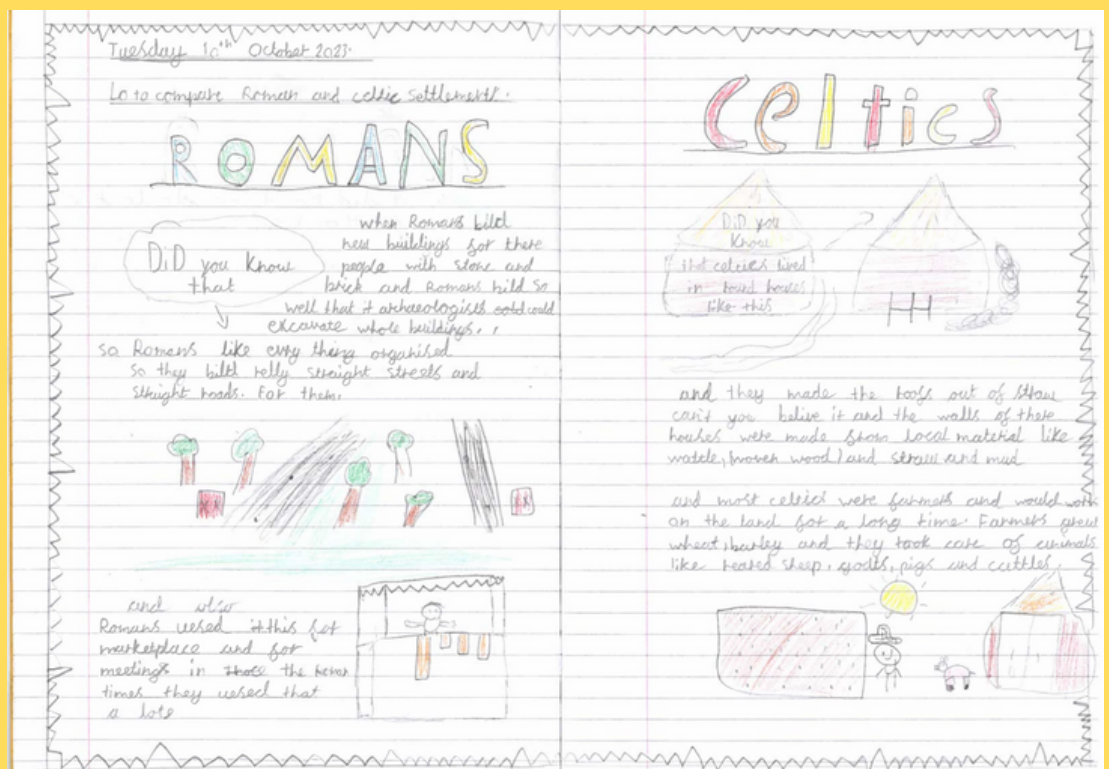 Tuesday 10th October 2023.
Lo to compare Roman and celtic settlements.
ROMANS
DiD you Know
that
when Romans bild
new buildings for there
people with stone and
brick and Romans bild so
well that it archaeologists could
excavate whole buildings.
so Romans like evry thing organised
so they billd relly straight streets and
straight roads. For them.
and also
Romans uesed this for
marketplace and for
meetings in the roman
times they uesed that
a lote
Celtics
DiD you
Know
that celtics lived
in round houses
like this
and they made the roofs out of straw
can't you belive it and the walls of there
houses were made from local material like
watele, (woven wood) and straw and mud
and most celtics were farmers and would work
on the land for a long time. Farmers grew
wheat, barley and they took care of animals
like reared sheep, goats, pigs and cattles.